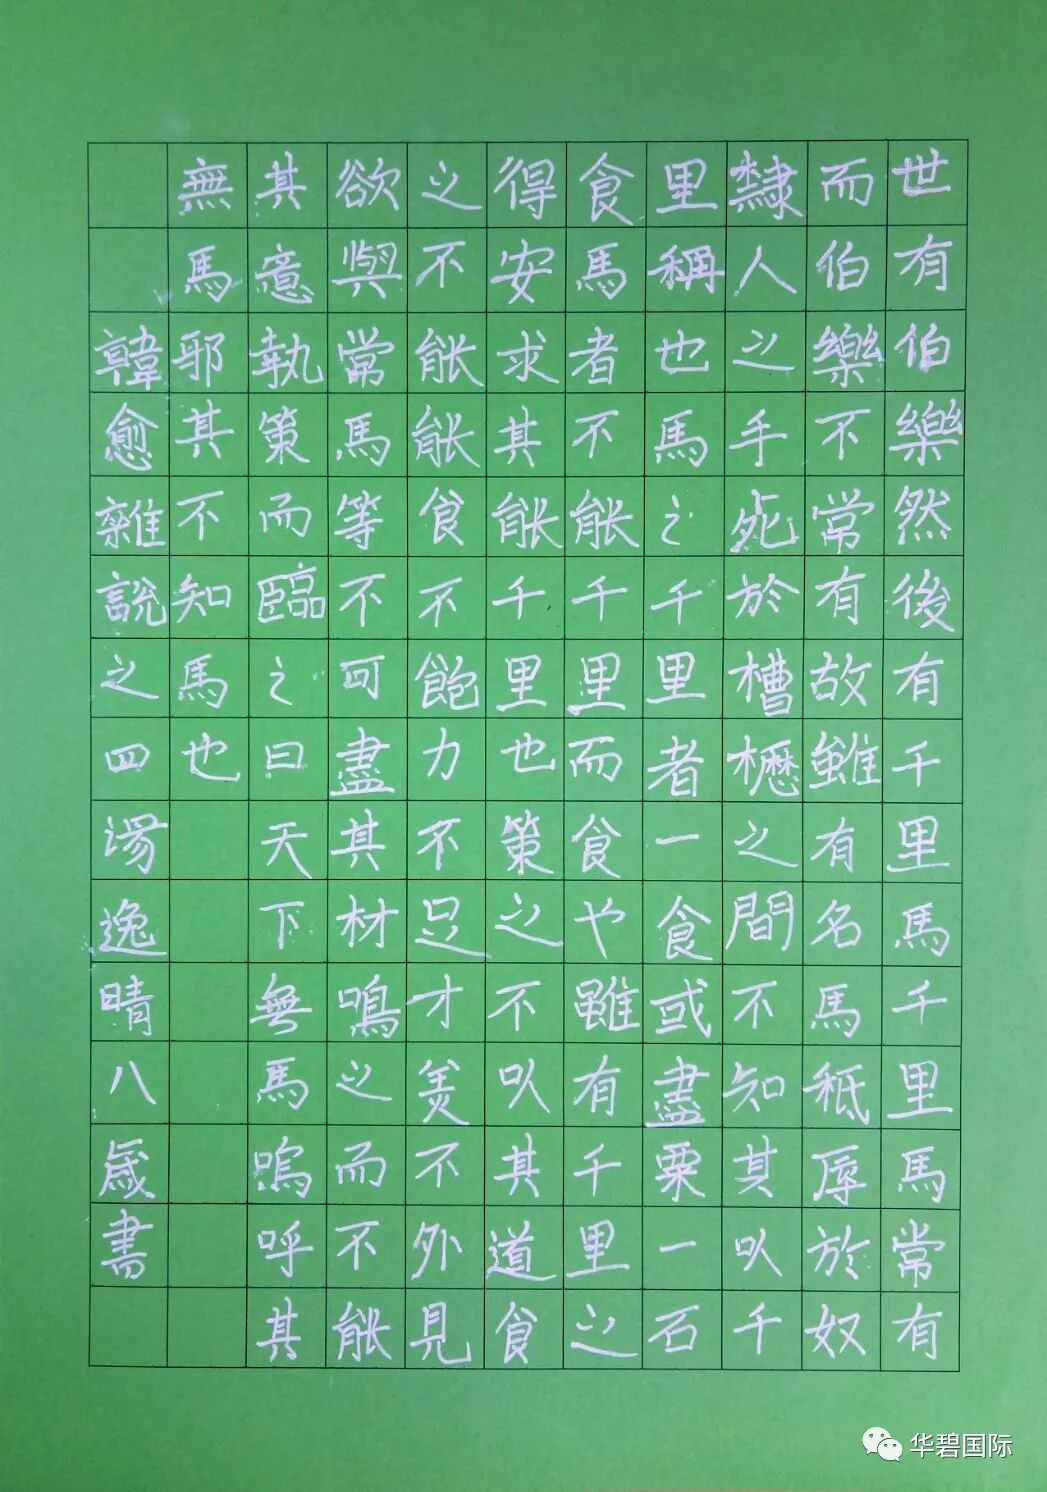 世有伯樂然後有千里馬千里馬常有
而伯樂不常有故雖有名馬秪辱於奴
隸人之手死於槽櫪之間不知其以千
里稱也馬之千里者一食或盡粟一石
食馬者不能千里而食也雖有千里之
得安求其能千里也策之不以其道食
之不能能食不飽力不足才美不外見
欲與常馬等不可盡其材鳴之而不能
其意執策而臨之曰天下無馬嗚呼其
無馬邪其不知馬也
韓愈雜說之四湯逸晴八歲書
华碧国际